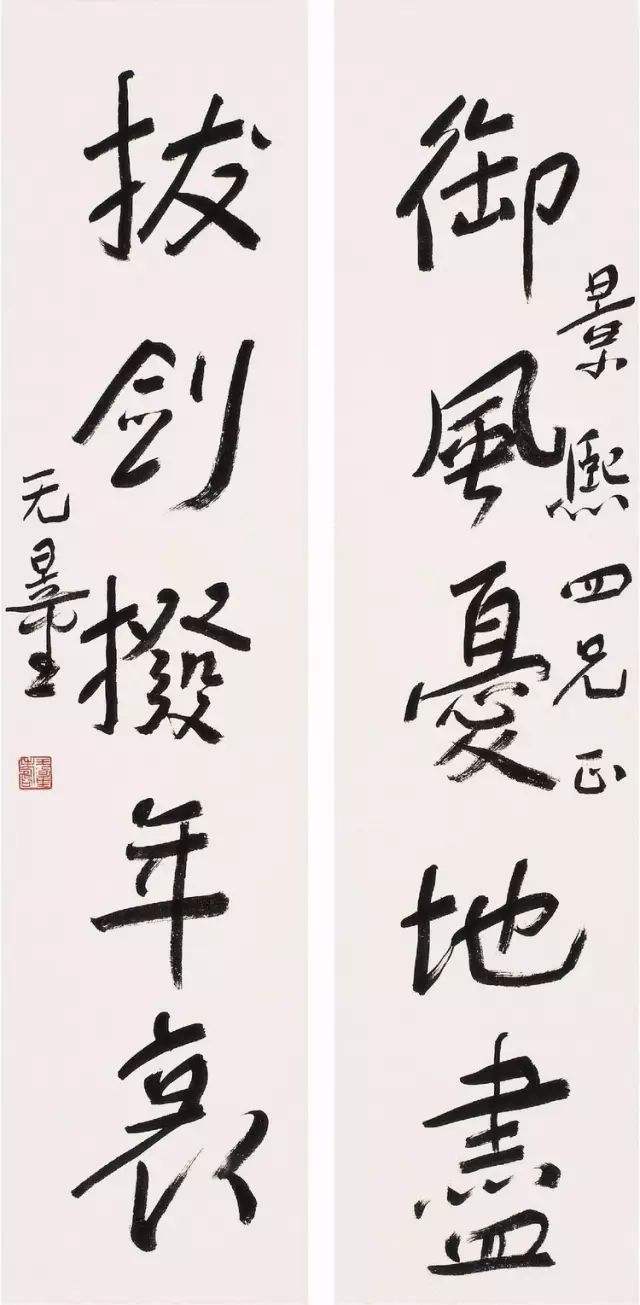 景熙四兄正
御風憂地盡
拔劍撥年衰
无量